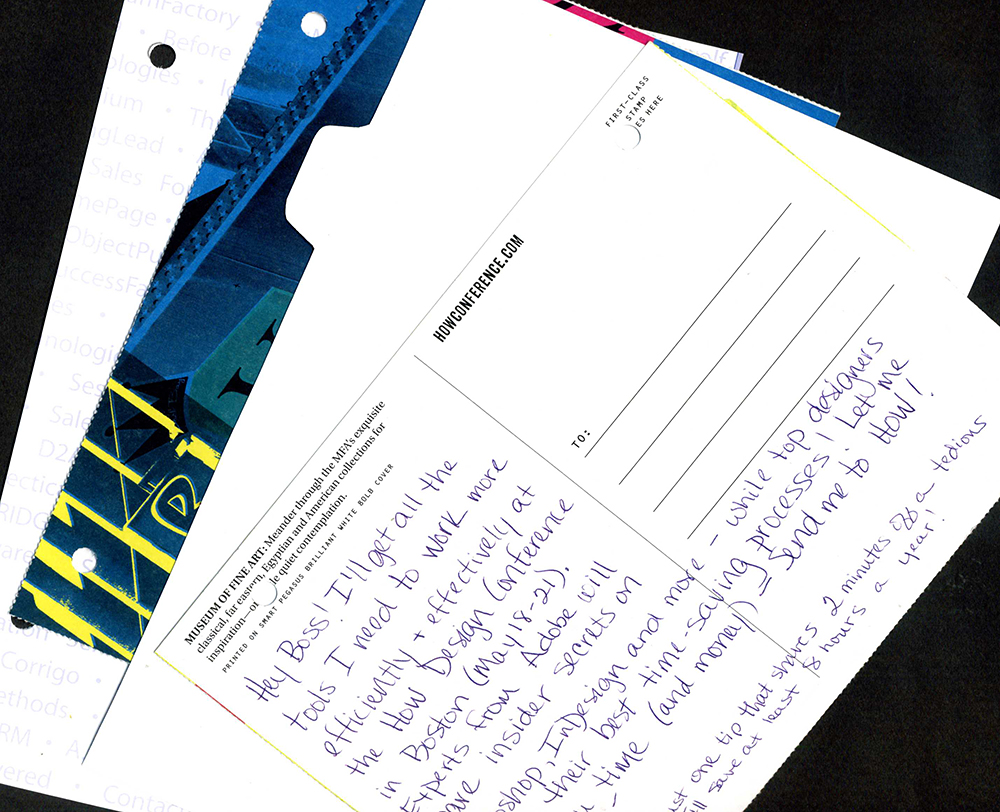 amFactory
• Before
ologies •
ium • Th
gLead •
Sales Fo
mePage •
ObjectPu
uccessFa
es •
nologi
Ses
Sale
D2
ectic
RIDG
Corrigo
ethods
RM • A
vered
Contac
FIRST-CLASS
STAMP
ES HERE
HOWCONFERENCE.COM
TO:
MUSEUM OF FINE ART: Meander through the MFA's exquisite
classical, far eastern, Egyptian and American collections for
inspiration—or le quiet contemplation.
PRINTED ON SMART PEGASUS BRILLIANT WHITE BOLD COVER
Hey Boss! I'll get all the
tools I need to work more
efficiently + effectively at
the How Design Conference
in Boston (May 18-21).
Experts from Adobe will
are insider secrets on
shop, InDesign and more - while top designers
their best time-saving processes! Let me
- time (and money) - Send me to HOW!
ust one tip that shares 2 minutes off a tedious
ll save at least 8 hours a year!